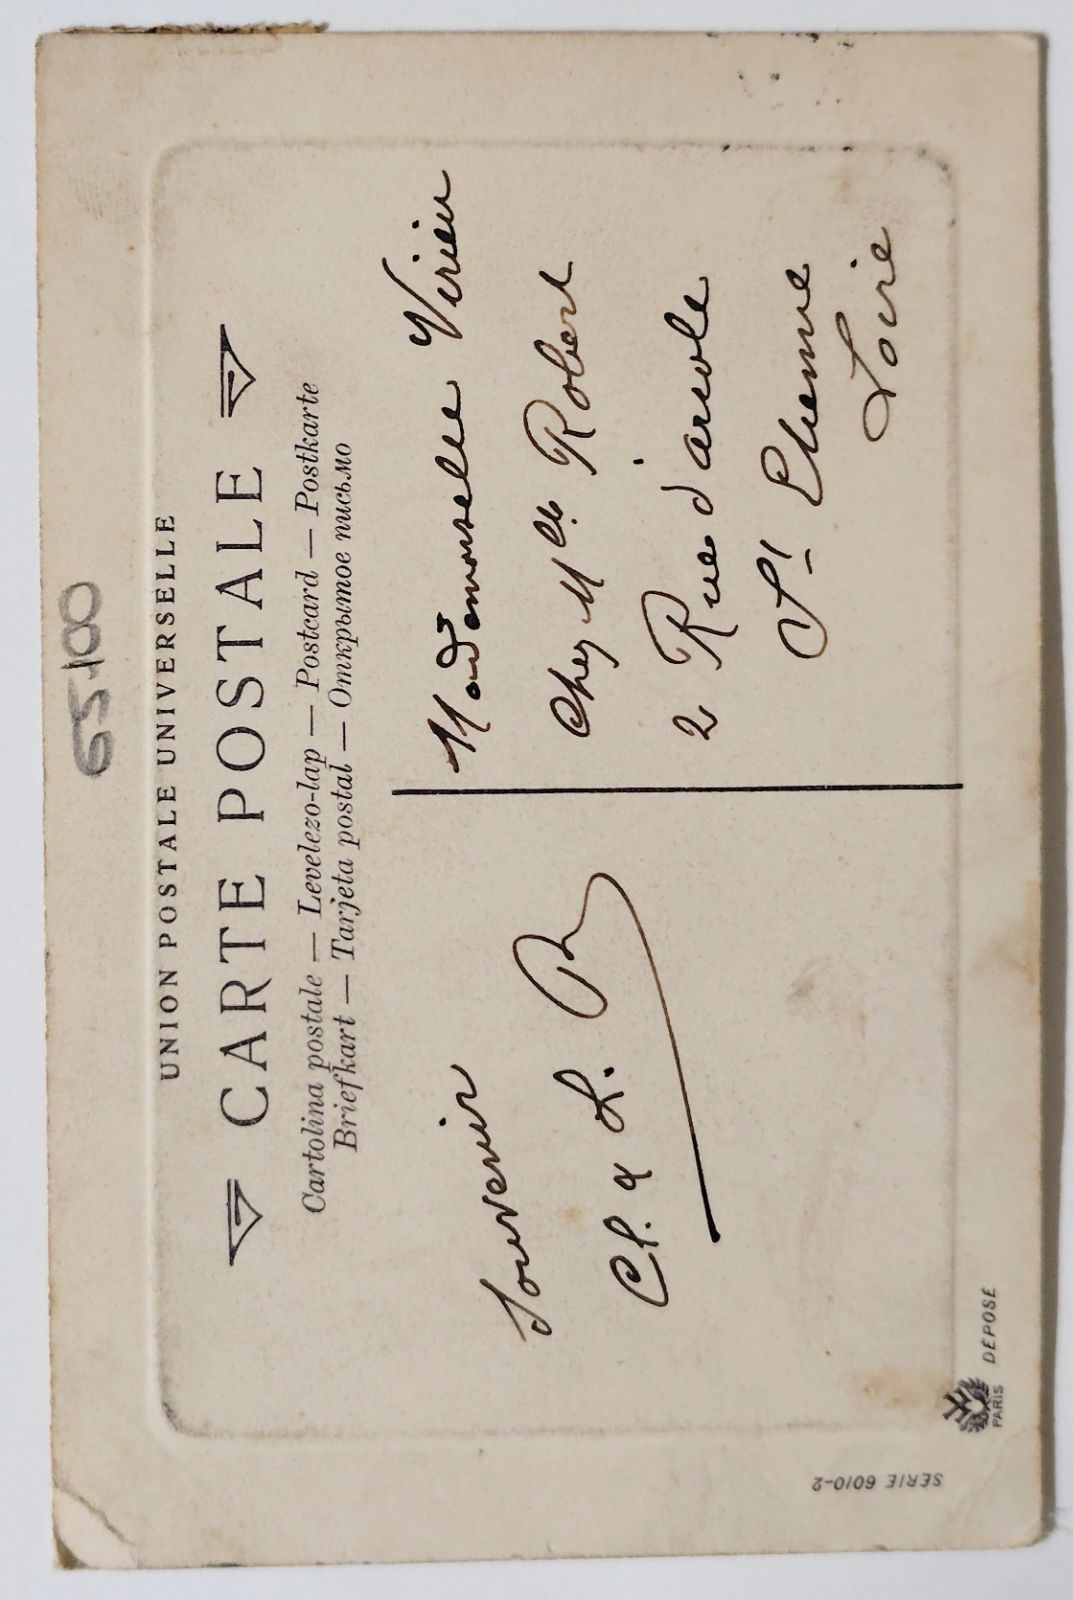 65-100
UNION POSTALE UNIVERSELLE
CARTE POSTALE
Cartolina postale — Levelezo-lap — Postcard — Postkarte
Briefkart — Tarjeta postal — Открытое письмо
Souvenir
Cl. & L. R
Mademoiselle Virieu
Chez Mlle Robert
2 Rue d'arcole
St Etienne
Loire
PARIS
DÉPOSÉ
SERIE 6010-2